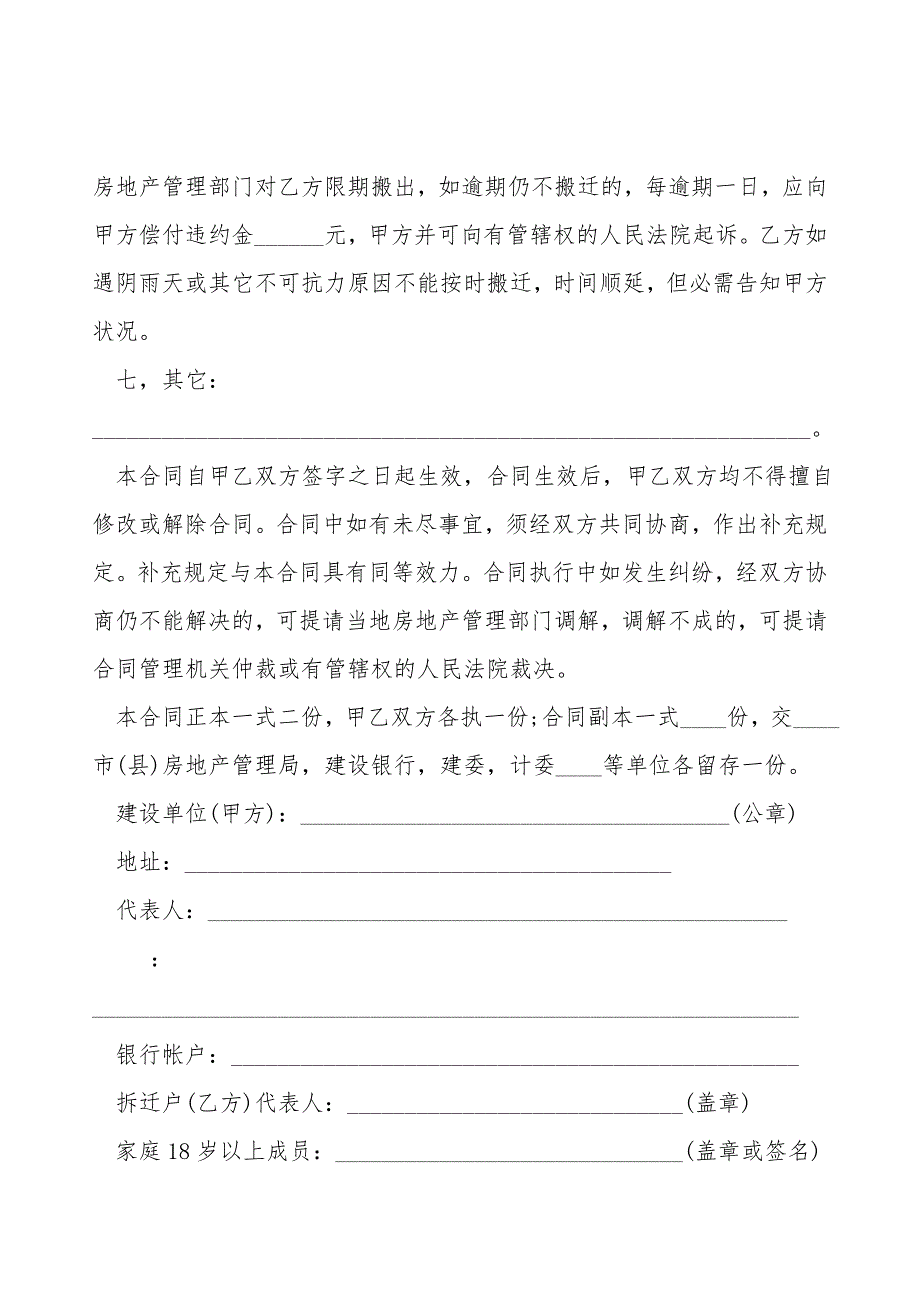 房地产管理部门对乙方限期搬出，如逾期仍不搬迁的，每逾期一日，应向
甲方偿付违约金______元，甲方并可向有管辖权的人民法院起诉。乙方如
遇阴雨天或其它不可抗力原因不能按时搬迁，时间顺延，但必需告知甲方
状况。
七，其它：
______________________________________________________________。
本合同自甲乙双方签字之日起生效，合同生效后，甲乙双方均不得擅自
修改或解除合同。合同中如有未尽事宜，须经双方共同协商，作出补充规
定。补充规定与本合同具有同等效力。合同执行中如发生纠纷，经双方协
商仍不能解决的，可提请当地房地产管理部门调解，调解不成的，可提请
合同管理机关仲裁或有管辖权的人民法院裁决。
本合同正本一式二份，甲乙双方各执一份;合同副本一式____份，交____
市(县)房地产管理局，建设银行，建委，计委____等单位各留存一份。
建设单位(甲方)：_____________________________________(公章)
地址：__________________________________________
代表人：__________________________________________________
：
_____________________________________________________________
银行帐户：_________________________________________________
拆迁户(乙方)代表人：_____________________________(盖章)
家庭 18 岁以上成员：______________________________(盖章或签名)